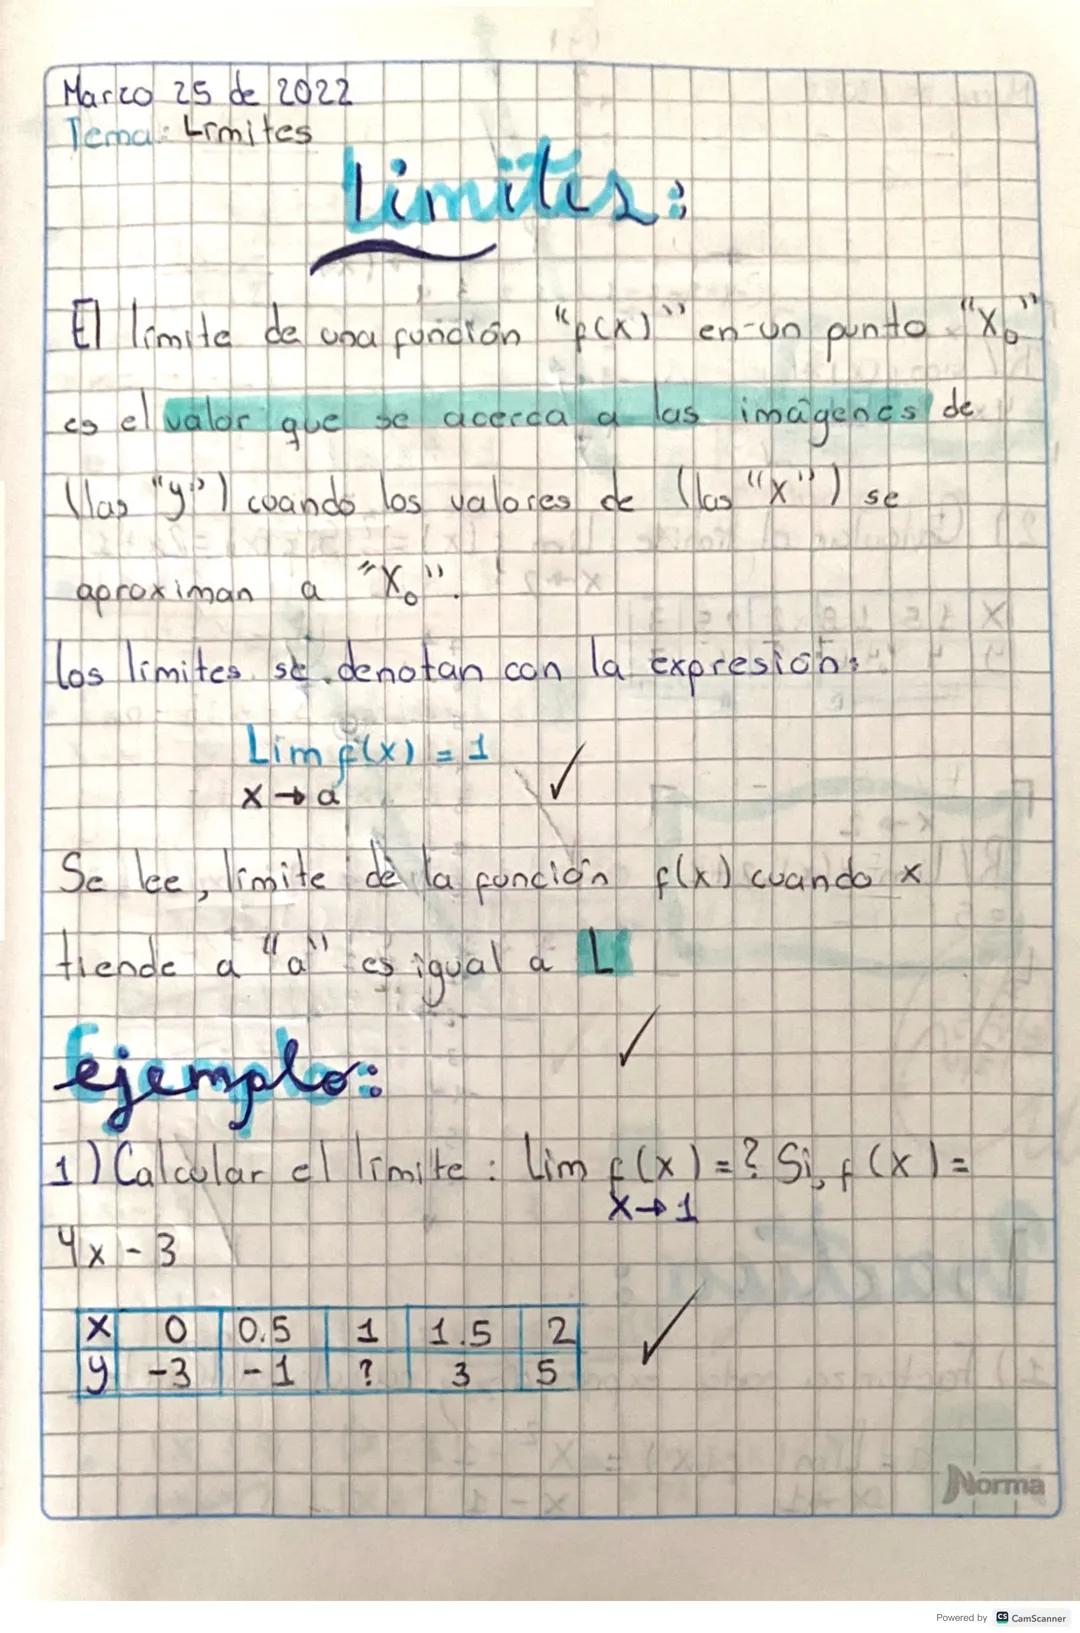 Marzo 25 de 2022
Tema: Límites
Límites:
El límite de una función "f(x)" en un punto "X₀"
es el valor que se acerca a las imágenes de
(las "y") cuando los valores de (las "x") se
aproximan a "X₀".
los límites se denotan con la expresión:
Lim f(x) = 1
x → a
Se lee, límite de la función f(x) cuando x
tiende a "a" es igual a L
Ejemplo:
1) Calcular el límite: lim f(x) = ? Si, f(x) =
x→1
4x - 3
x 0 0.5 1 1.5 2
y -3 -1 ? 3 5
Norma
Powered by CS CamScanner